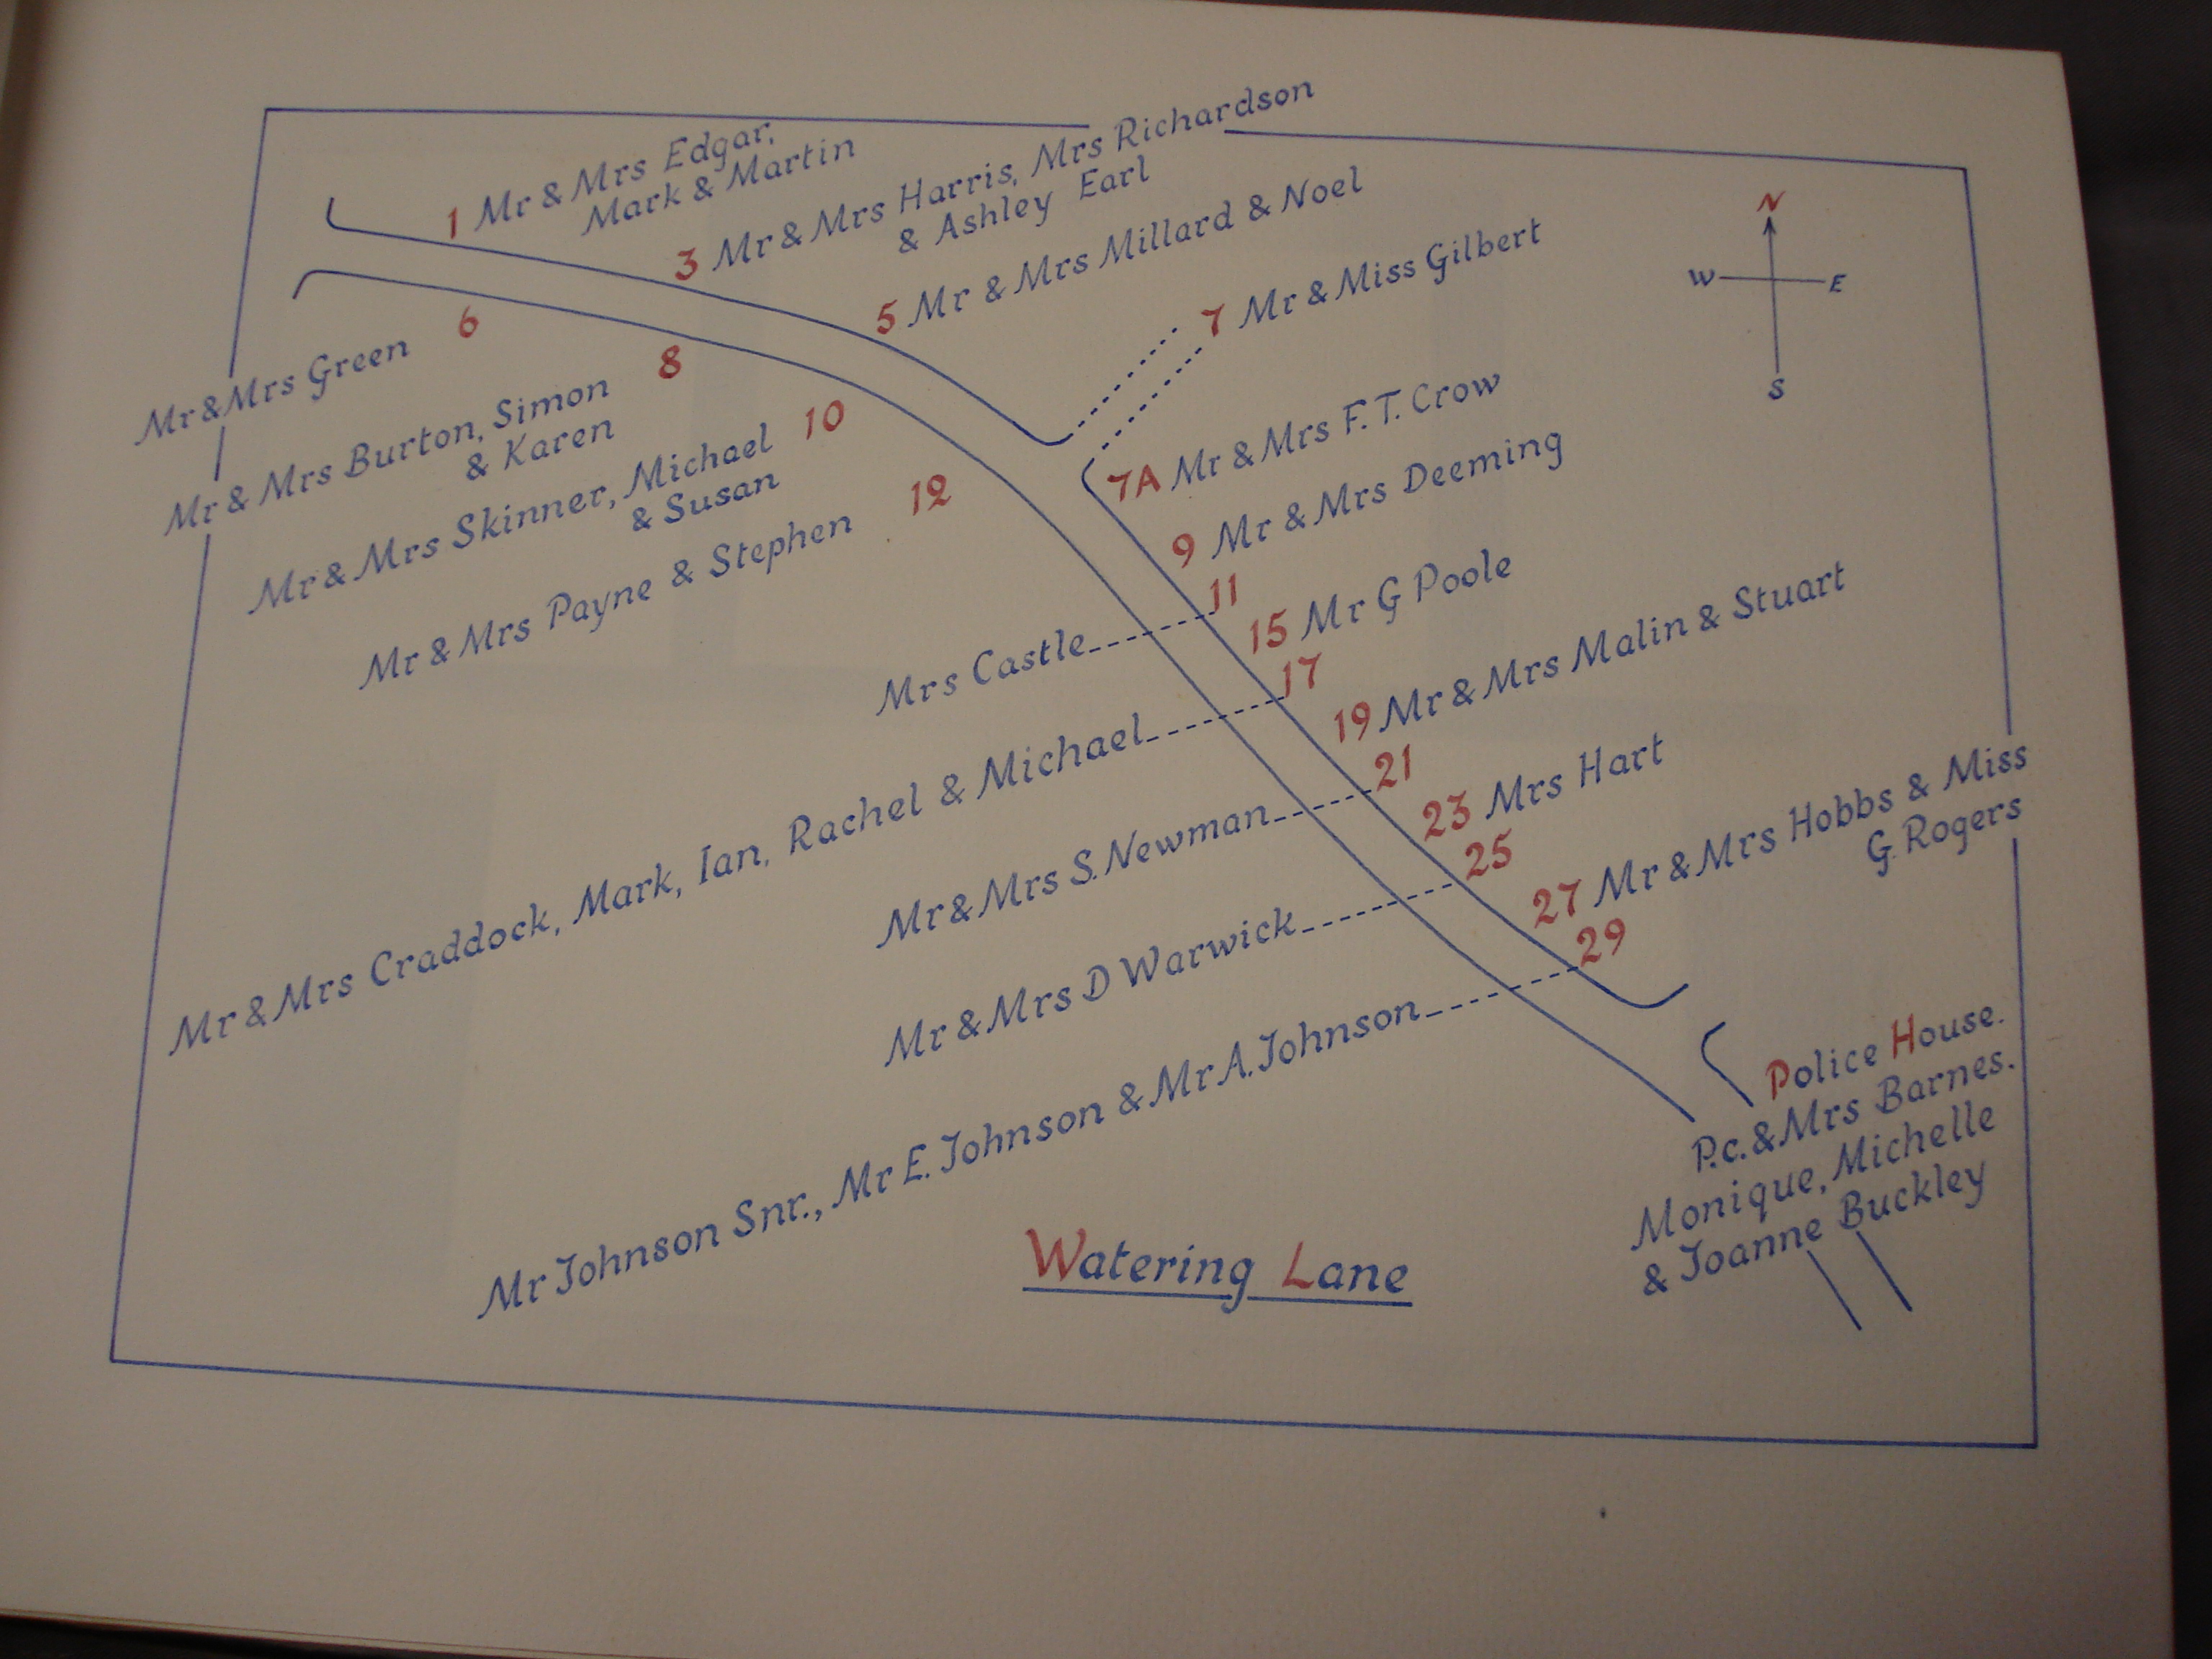 1 Mr & Mrs Edgar,
Mark & Martin
3 Mr & Mrs Harris, Mrs Richardson
& Ashley Earl
5 Mr & Mrs Millard & Noel
7 Mr & Miss Gilbert
N
W E
S
7A Mr & Mrs F.T. Crow
9 Mr & Mrs Deeming
11
15 Mr G Poole
17
19 Mr & Mrs Malin & Stuart
21
23 Mrs Hart
25
27 Mr & Mrs Hobbs & Miss
G. Rogers
29
Police House.
P.c. & Mrs Barnes.
Monique, Michelle
& Joanne Buckley
Mr & Mrs Green 6
Mr & Mrs Burton, Simon 8
& Karen
Mr & Mrs Skinner, Michael 10
& Susan
Mr & Mrs Payne & Stephen 12
Mrs Castle
Mr & Mrs Craddock, Mark, Ian, Rachel & Michael
Mr & Mrs S. Newman
Mr & Mrs D Warwick
Mr Johnson Snr., Mr E. Johnson & Mr A. Johnson
Watering Lane